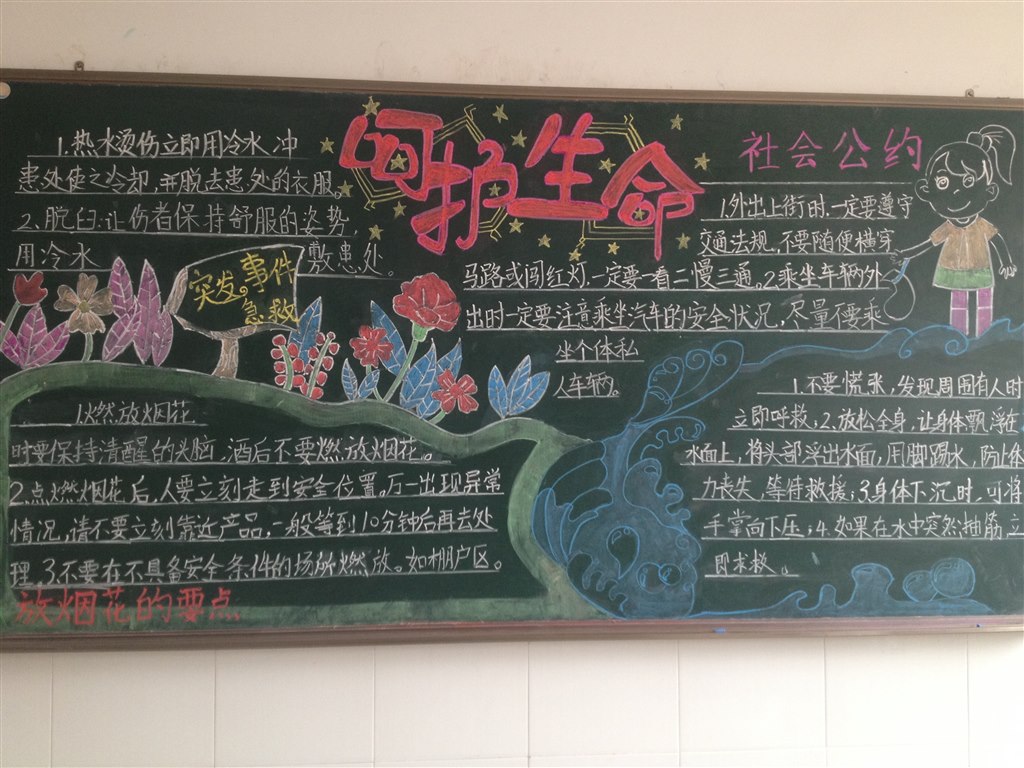 呵护生命
1.热水烫伤立即用冷水冲
患处使之冷却,并脱去患处的衣服。
2.脱臼:让伤者保持舒服的姿势,
用冷水 敷患处。
突发事件
急救
社会公约
1.外出上街时,一定要遵守
交通法规,不要随便横穿
马路或闯红灯,一定要一看二慢三通。2.乘坐车辆外
出时一定要注意乘坐汽车的安全状况,尽量不要乘
坐个体私
人车辆。
1.燃放烟花
时要保持清醒的头脑,酒后不要燃放烟花。
2.点燃烟花后,人要立刻走到安全位置。万一出现异常
情况,请不要立刻靠近产品,一般等到10分钟后再去处
理,3.不要在不具备安全条件的场所燃放。如棚户区。
放烟花的要点
1.不要慌张,发现周围有人时
立即呼救;2.放松全身,让身体飘浮在
水面上,将头部浮出水面,用脚踢水,防止体
力丧失,等待救援;3.身体下沉时,可将
手掌向下压;4.如果在水中突然抽筋,立
即求救。